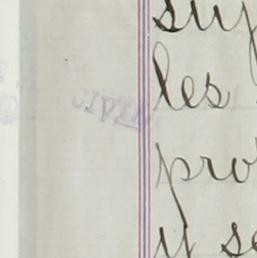 sup
les
pro
y se